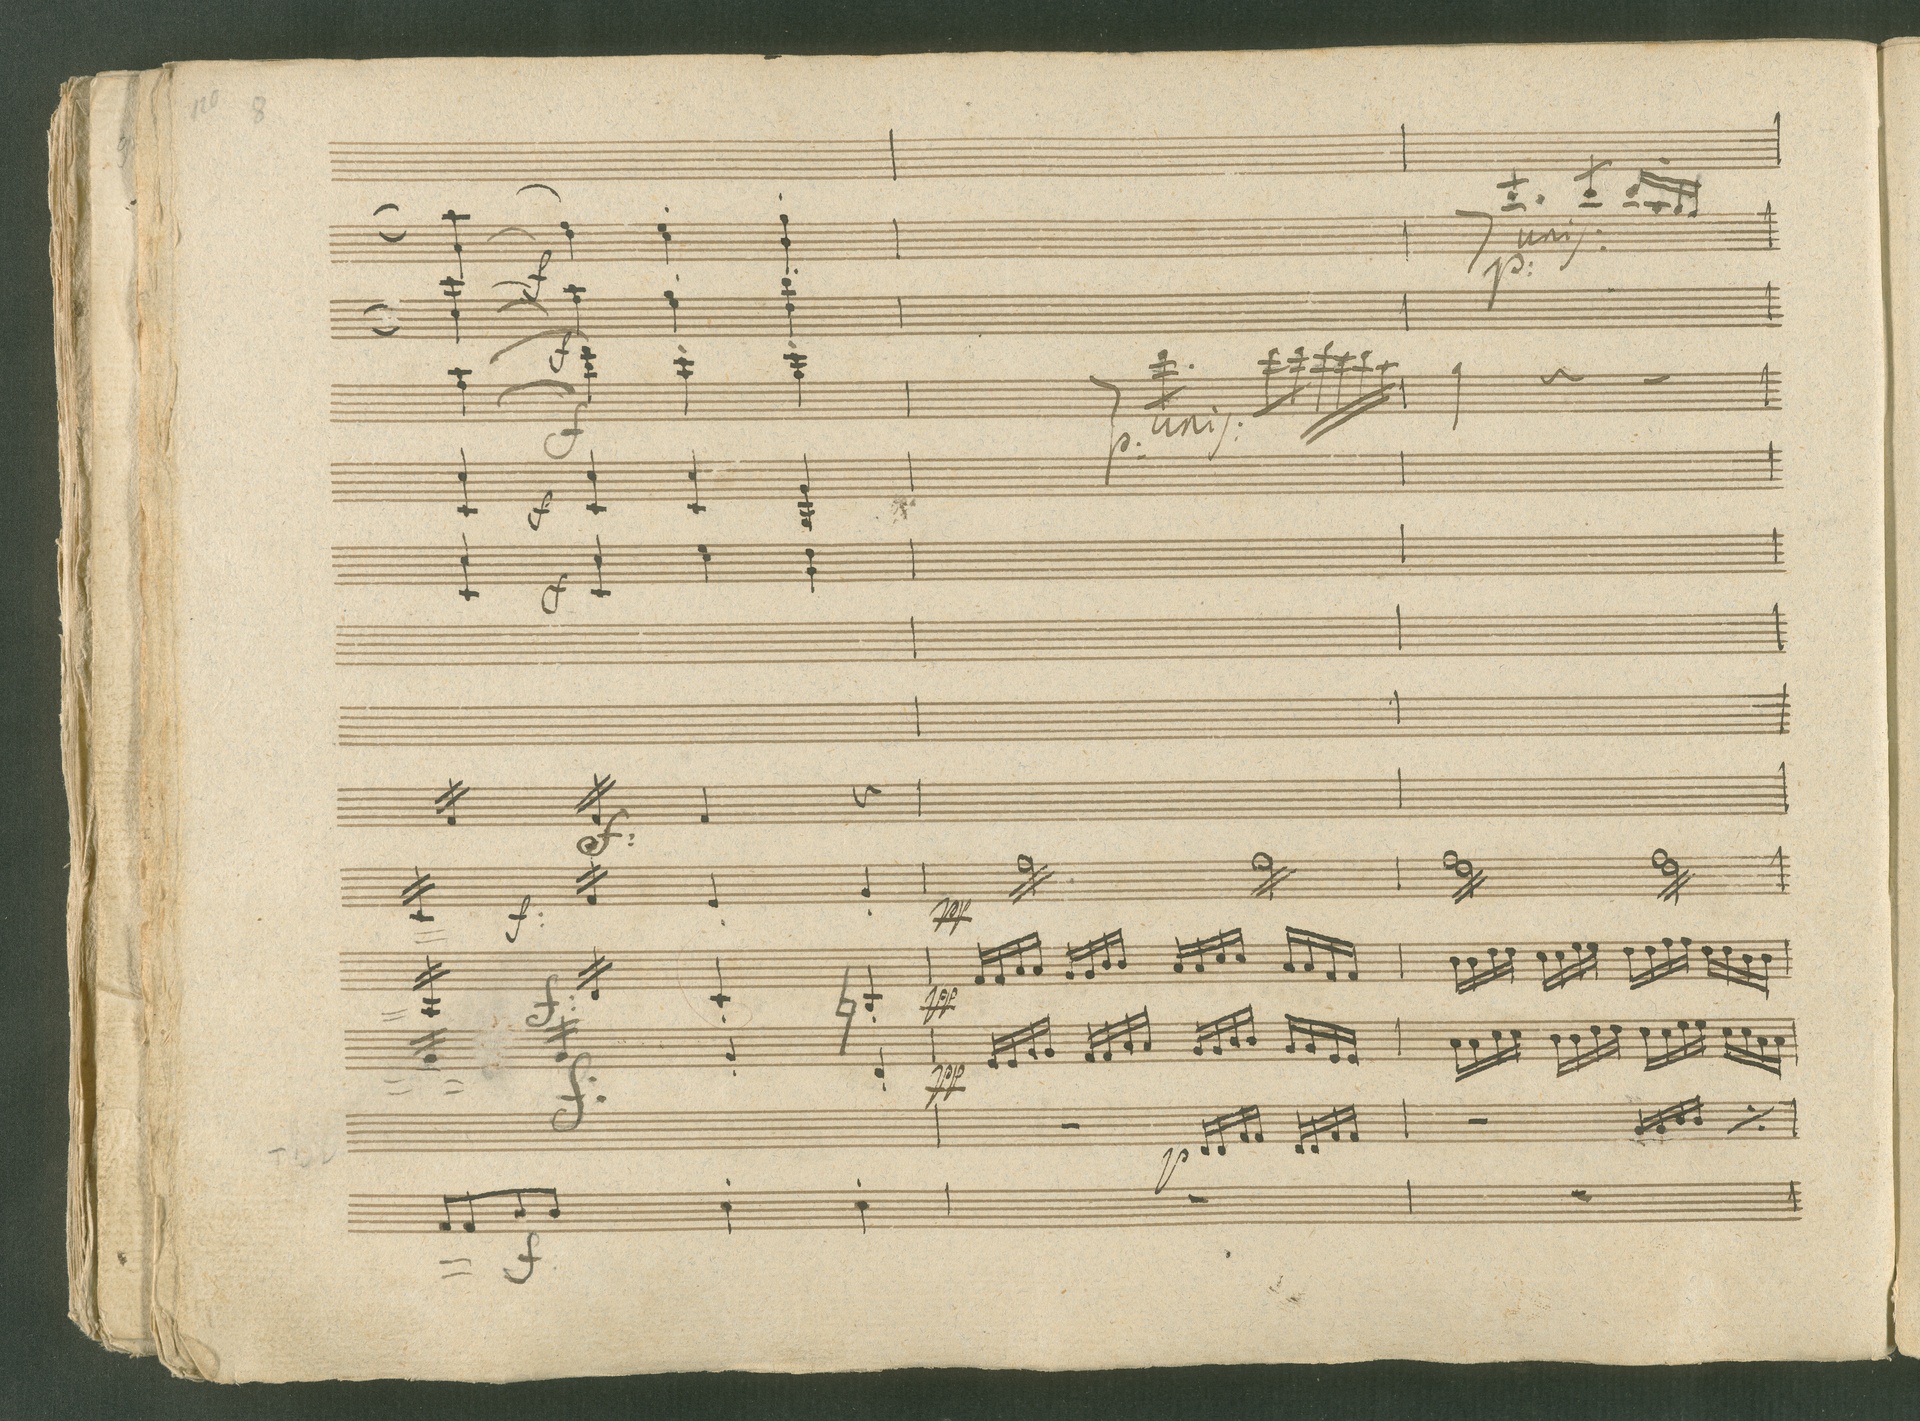 120 8
f
unis:
p:
f
f
p: unis:
f
f
f:
f:
pp
f:
pp
f:
pp
p
f